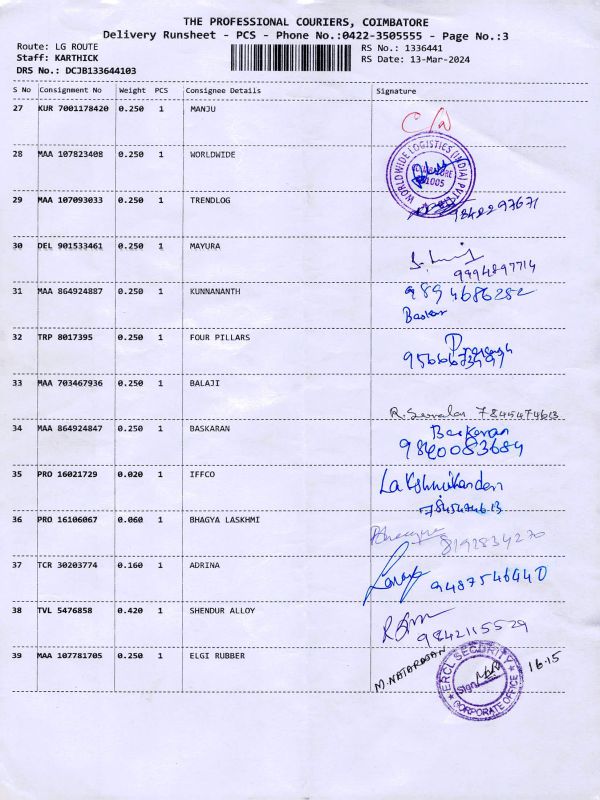 THE PROFESSIONAL COURIERS, COIMBATORE
Delivery Runsheet - PCS - Phone No.:0422-3505555 - Page No.:3
Route: LG ROUTE RS No.: 1336441
Staff: KARTHICK RS Date: 13-Mar-2024
DRS No.: DCJB133644103
S No Consignment No Weight PCS Consignee Details Signature
27 KUR 7001178420 0.250 1 MANJU
28 MAA 107823408 0.250 1 WORLDWIDE
WORLDWIDE LOGISTICS (INDIA) PVT
29 MAA 107093033 0.250 1 TRENDLOG
9842297671
30 DEL 901533461 0.250 1 MAYURA
9994897714
31 MAA 864924887 0.250 1 KUNNANANTH 9894686282
Baskar
32 TRP 8017395 0.250 1 FOUR PILLARS
33 MAA 703467936 0.250 1 BALAJI
7845474613
34 MAA 864924847 0.250 1 BASKARAN Baskaran
9840083684
35 PRO 16021729 0.020 1 IFFCO Lakshmikanden
7845474613
36 PRO 16106067 0.060 1 BHAGYA LASKHMI
8192834270
37 TCR 30203774 0.160 1 ADRINA
9487546440
38 TVL 5476858 0.420 1 SHENDUR ALLOY
9842115529
39 MAA 107781705 0.250 1 ELGI RUBBER M. NATARAJAN
ERCL SECURITY
Sign
CORPORATE OFFICE
16.15